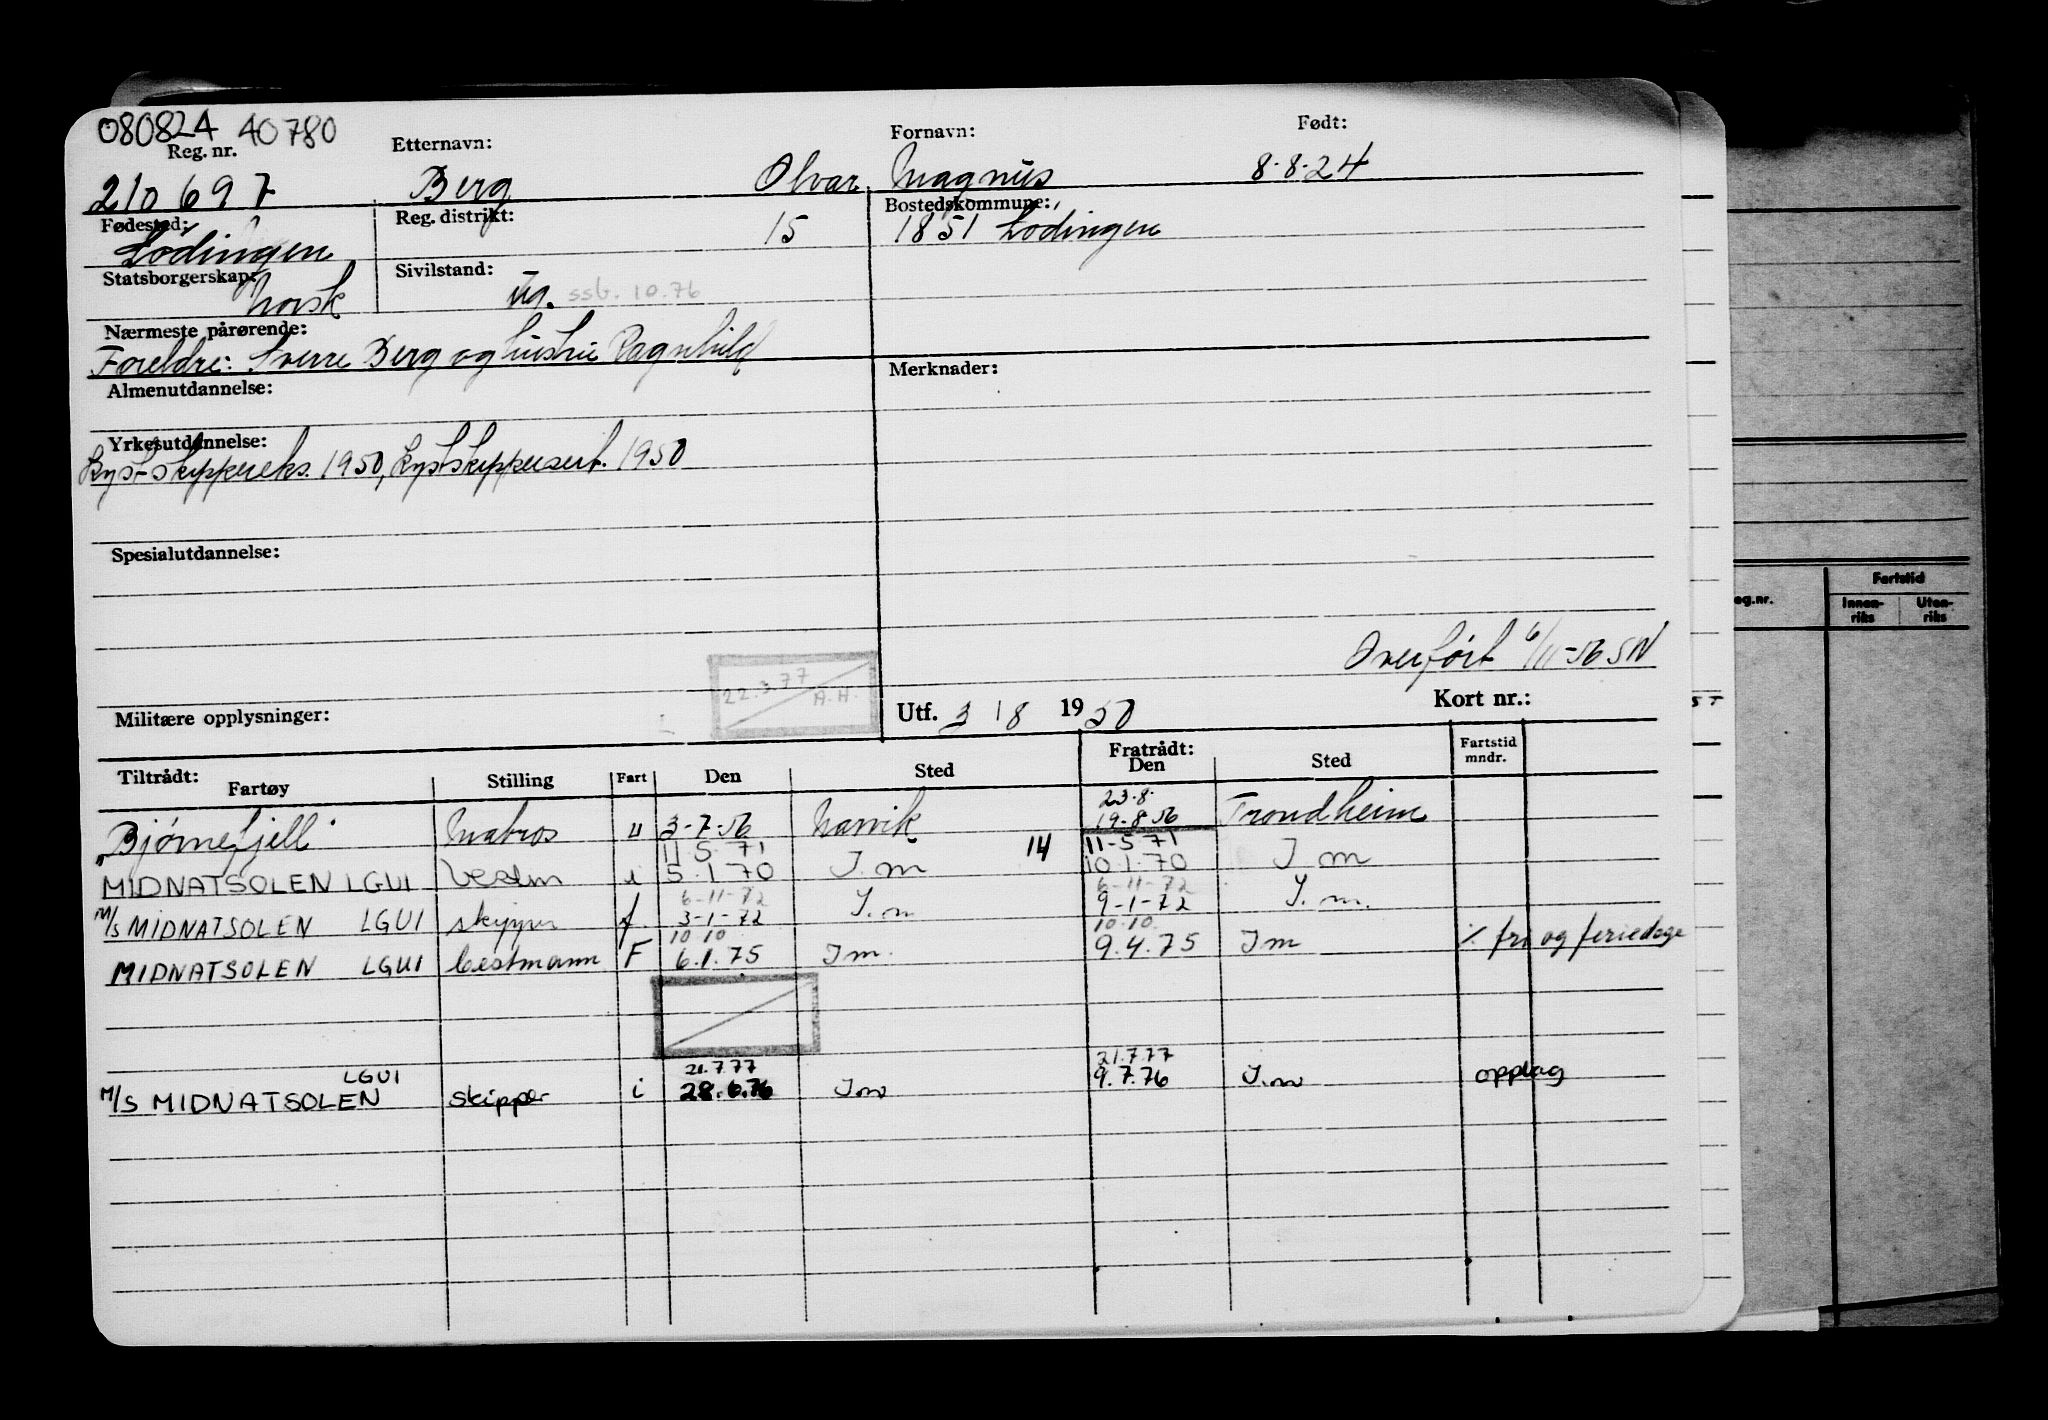 080824 40780
Reg. nr. Etternavn: Fornavn: Født:
210697 Berg Olvar Magnus 8-8-24
Fødested: Reg. distrikt: 15 Bostedskommune:
Lødingen 1851 Lødingen
Statsborgerskap: Sivilstand:
Norsk ug. ssb. 10.76
Nærmeste pårørende:
Foreldre: Sverre Berg og hustru Ragnhild
Almenutdannelse: Merknader:
Yrkesutdannelse:
Kyst-skippereks. 1950, Kystskippersert. 1950
Spesialutdannelse:
Overført 6/11-56 SN
22.3.77 A.H.
Militære opplysninger: Utf. 3 / 8 1950 Kort nr.:
Tiltrådt: Fratrådt: Fartstid
Fartøy Stilling Fart Den Sted Den Sted mndr.
23.8.
"Bjørnefjell" Matros u 3-7-56 Narvik 19-8-56 Trondheim
11.5.71 14 11-5-71
MIDNATSOLEN LGUI bestm i 5.1.70 I.m 10.1.70 I m
6-11-72 6-11-72
M/S MIDNATSOLEN LGUI skipper f. 3-1-72 I.m 9-1-72 I.m.
10 10 10.10.
MIDNATSOLEN LGUI bestmann F 6.1.75 Im. 9.4.75 Im % fri og feriedage
21.7.77 21.7.77
LGUI
M/S MIDNATSOLEN skipper i 28.6.76 Im 9.7.76 I.m opplag
eg.nr. Fartstid
Innen-riks Uten-riks